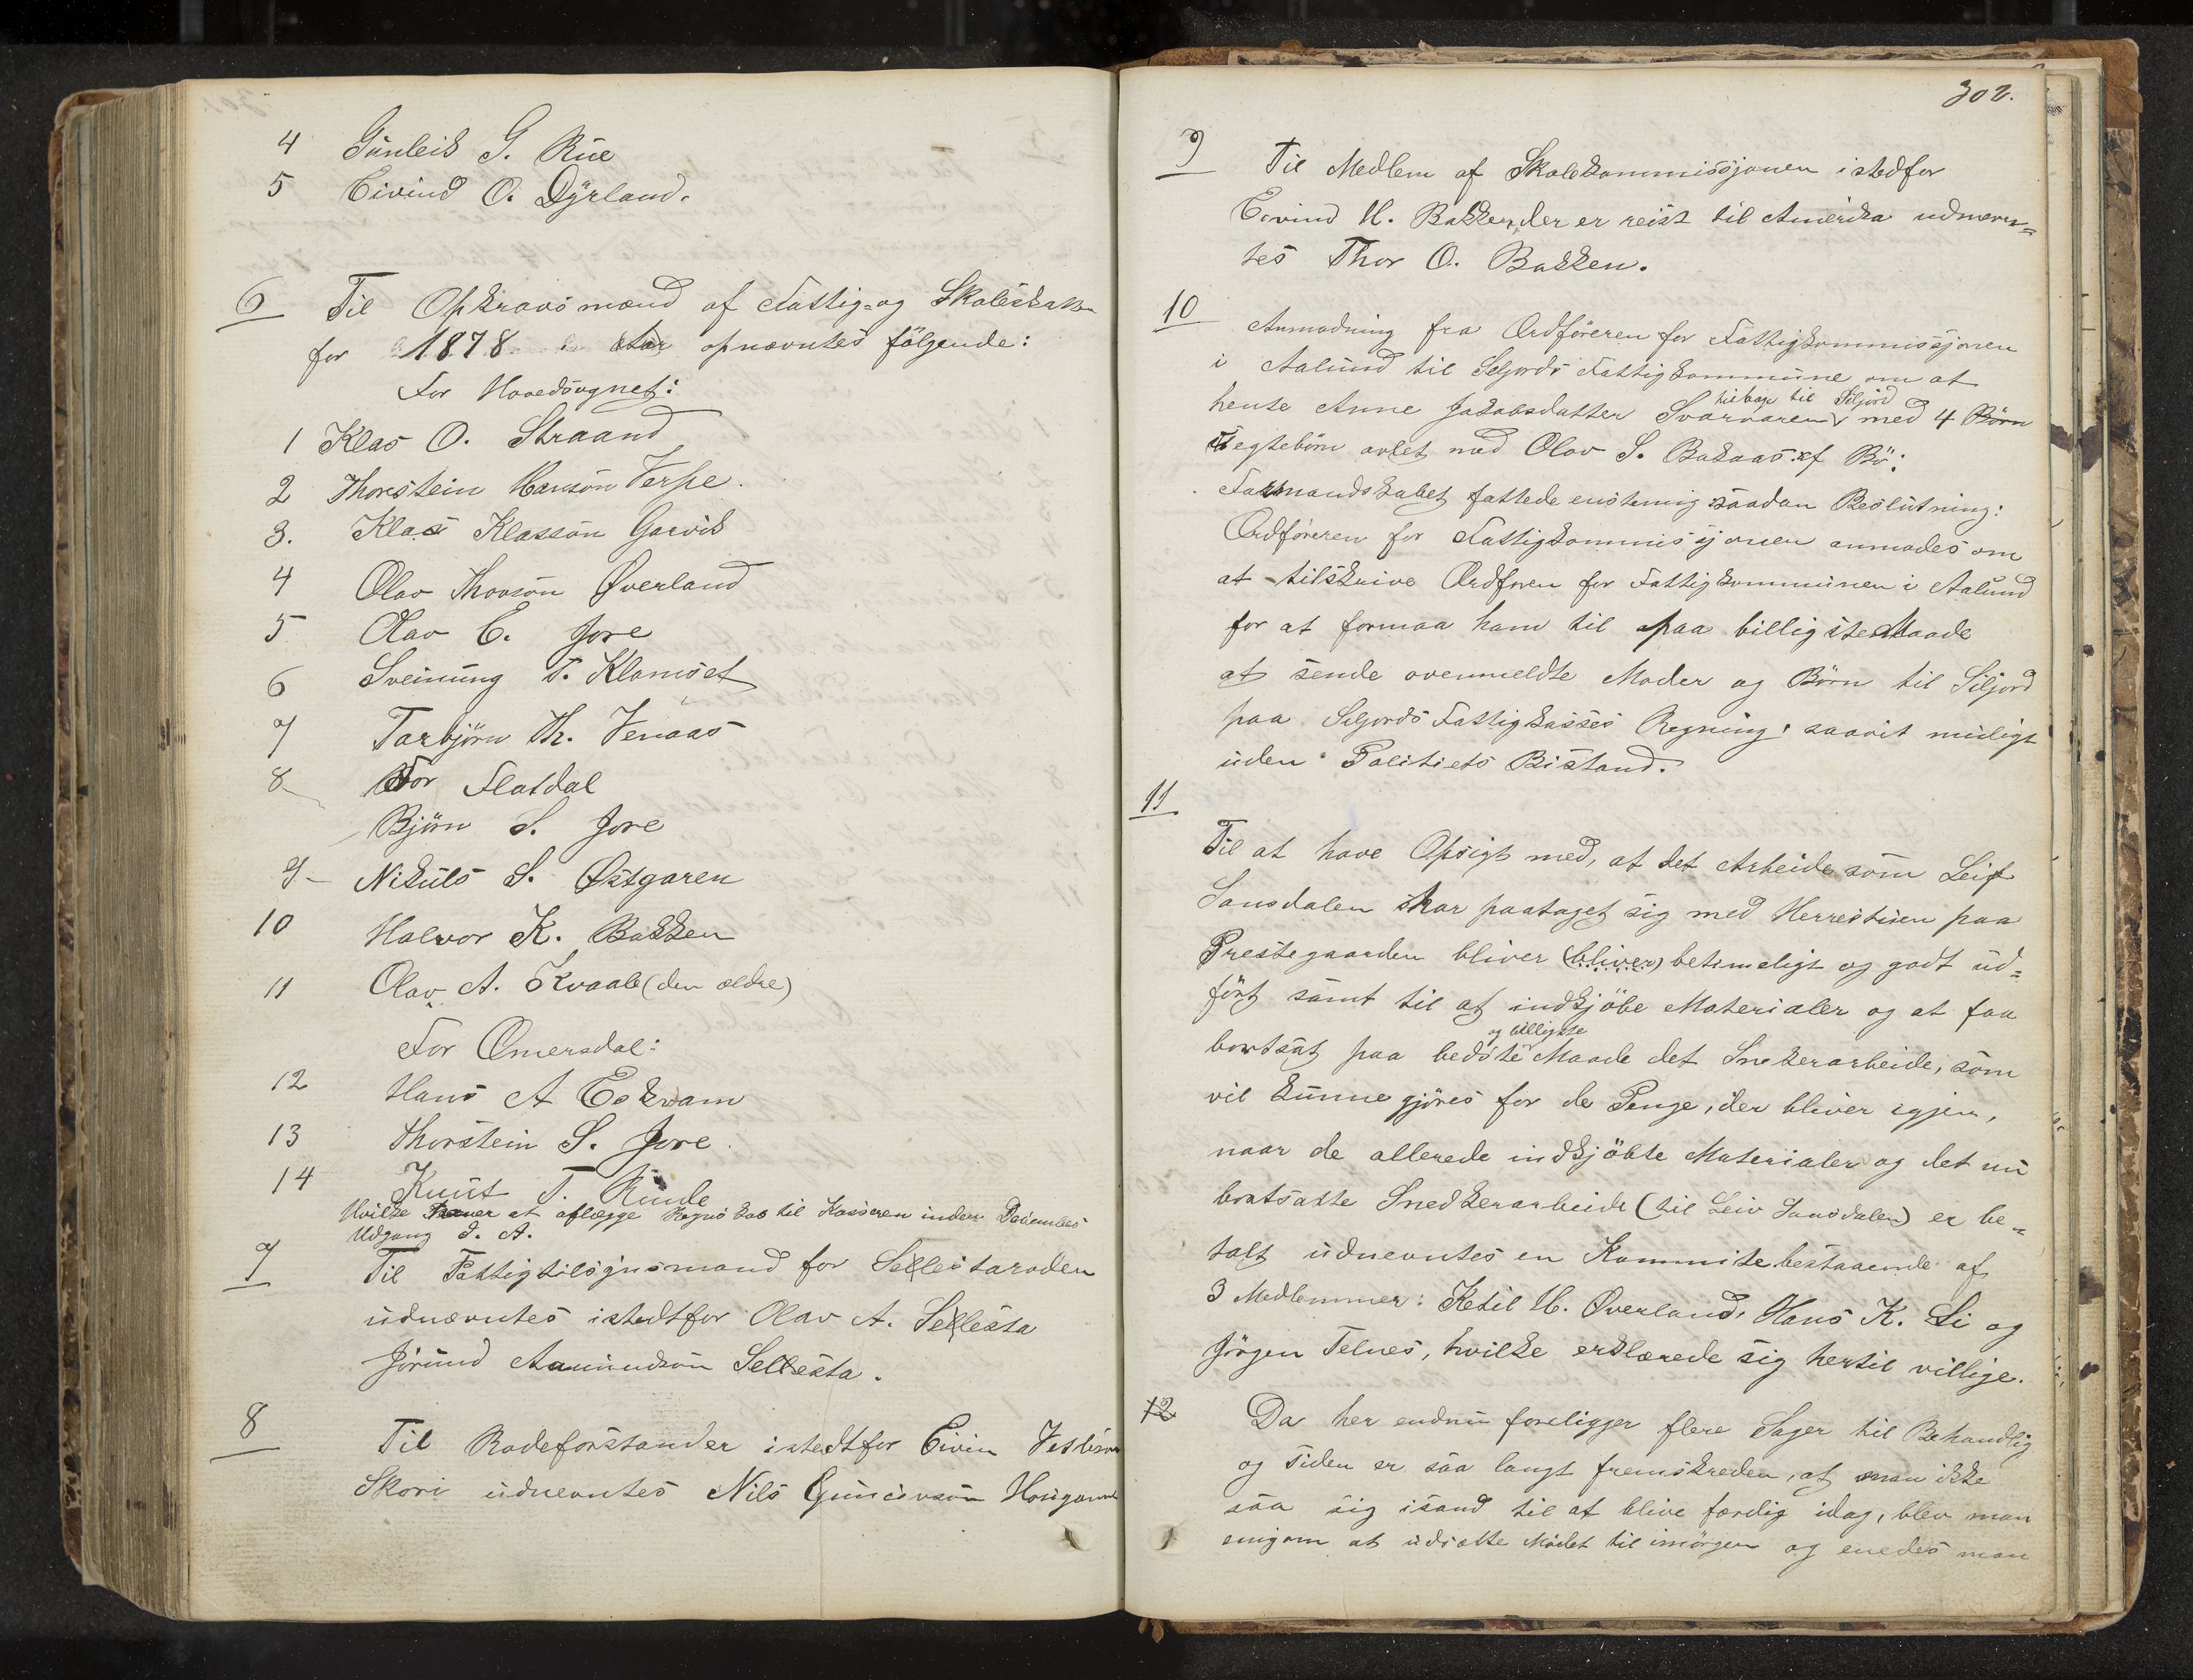 4 Gunleik G. Rue
5 Eivind O. Dyrland.
6 Til Opkravsmænd af Fattig- og Skoleskatten
for 1878 opnævntes følgende:
For Hovedsognet:
1 Klas O. Straand
2 Thorstein Hansøn Verpe.
3. Klas Klassøn Garvik
4 Olav Thovsøn Øverland
5 Olav E. Jore
6 Sveinung T. Klomset
7 Tarbjørn Th. Venaas
8 For Flatdal
Bjørn S. Jore
9 - Nikuls S. Østgaren
10 Halvor K. Bakken
11 Olav A. Kvaale (den ældre)
For Omersdal:
12 Hans A Eekvam
13 Thorstein S. Jore.
14 Knut T. Rinde
Hvilke haver at aflægge Regnskab til Kasseren inden Decembers
Udgang d. A.
7 Til Fattigtilsynsmand for Sellestaroden
udnævntes istedtfor Olav A. Sellesta
Jørund Aamundsøn Sellesta.
8 Til Rodeforstander istedtfor Eivin
Skori udnevntes Nils
302.
9 Til Medlem af Skolekommissjonen istedfor
Eivind H. Bakken, der er reist til Amerika udnævn=
tes Thor O. Bakken.
10 Anmodning fra Ordføreren for Fattigkommissjonen
i Aalund til Seljords Fattigkommune om at
hente Anne Jakobsdatter Svarvaren tilbage til Siljord med 4 Børn
Ægtebørn avlet med Olav S. Bakaas af Bø:
Formandskabet fattede enstemig saadan Beslutning:
Ordføreren for Fattigkommissjonen anmodes om
at tilskrive Ordføren for Fattigkommunen i Aalund
for at formaa ham til paa billigste Maade
at sende ovenmeldte Moder og Børn til Siljord
paa Seljords Fattigkasses Regning; saavit muligt
uden Politiets Bistand.
11
Til at have Opsigt med, at det Arbeide som Leif
Sansdalen har paataget sig med Herrestuen paa
Prestegaarden bliver (bliver) betimeligt og godt ud=
ført samt til at indkjøbe Materialer og at faa
bortsat paa bedste og billigste Maade det Snekerarbeide, som
vil kunne gjøres for de Penge, der bliver igjen,
naar de allerede indkjøbte Materialer og det nu
bortsatte Snedkerarbeide (til Leiv Sansdalen) er be=
talt udnevntes en Kommite bestaaende af
3 Medlemmer: Ketil H. Øverland, Hans K. Li og
Jørgen Telnes, hvilke erklærede sig hertil villige.
12 Da her endnu foreligger flere Sager til Behandlig
og Tiden er saa langt fremskreden, at man ikke
saa sig istand til at blive færdig idag, blev man
enigom at udsætte Mødet til imorgen og enedes man